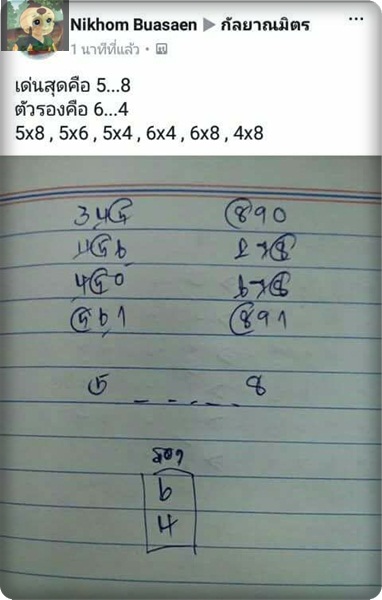 Nikhom Buasaen ▶ กัลยาณมิตร
1 นาทีที่แล้ว ·
เด่นสุดคือ 5...8
ตัวรองคือ 6...4
5x8 , 5x6 , 5x4 , 6x4 , 6x8 , 4x8
34๕ ๘90
๕6
4๕0
๕61 ๘91
๕ _ _ . _ . _ 8
รอง
6
4